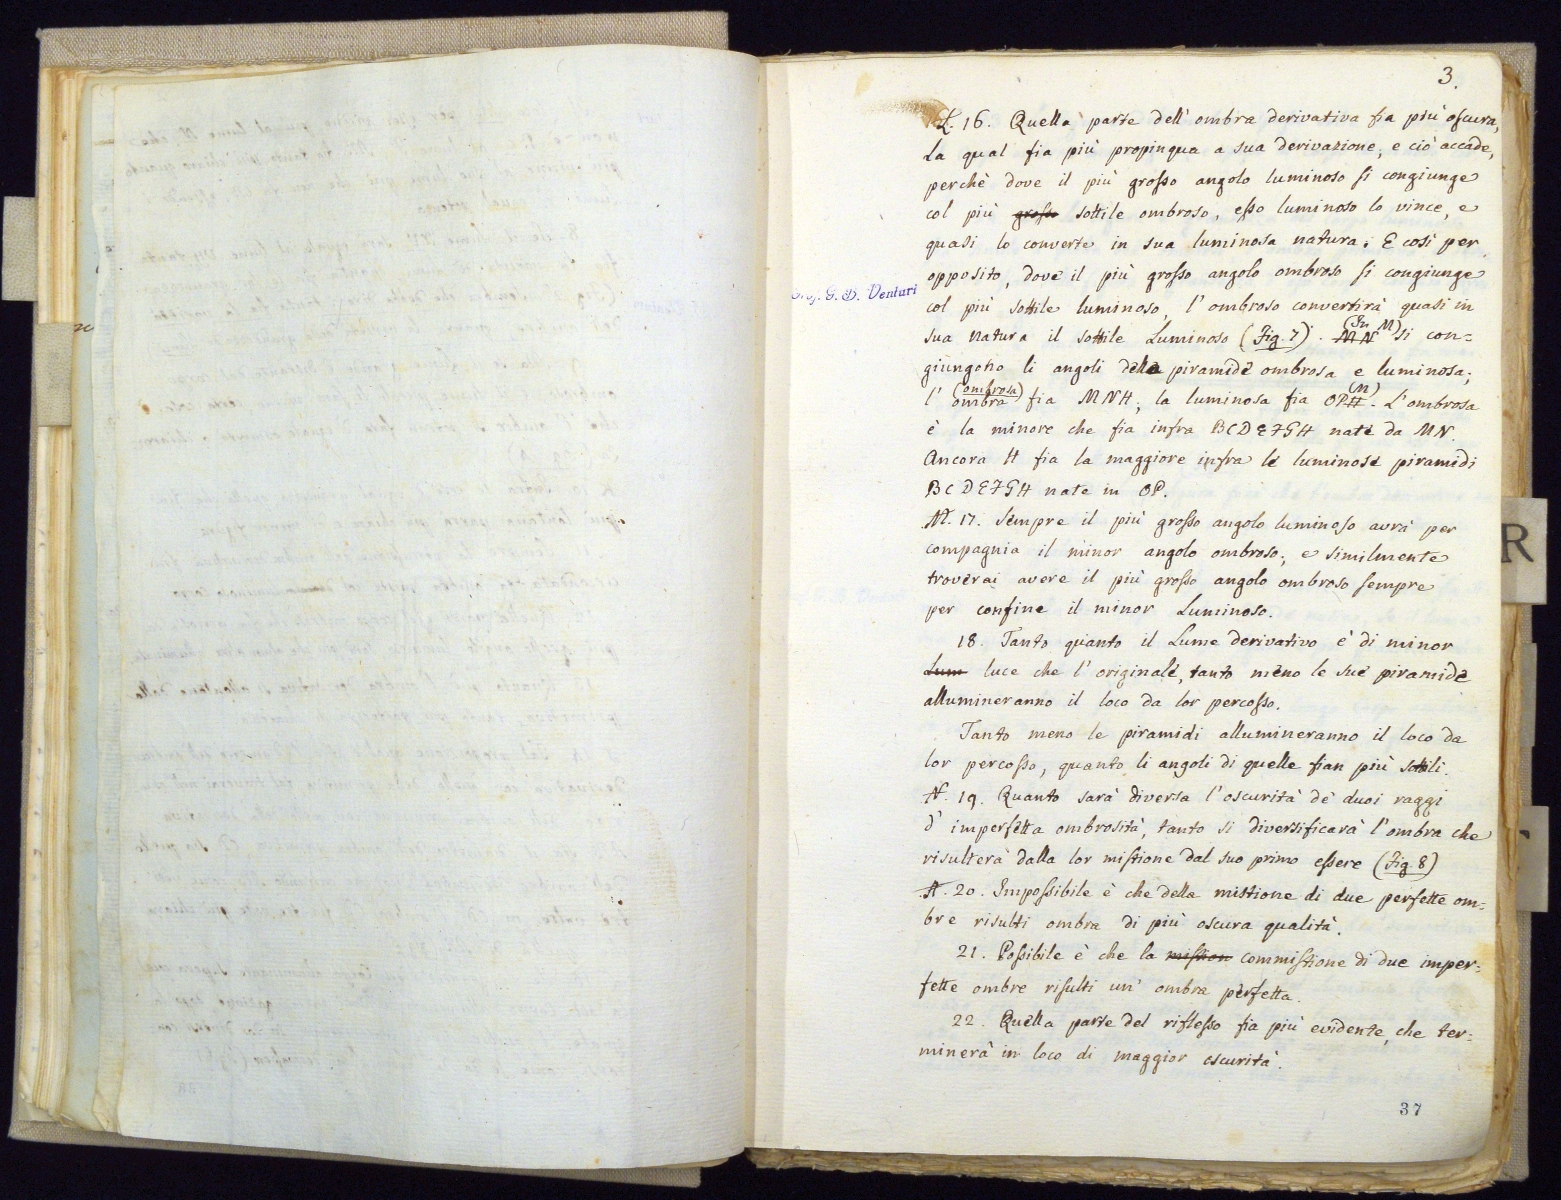 3.
L. 16. Quella parte dell' ombra derivativa fia più oscura,
la qual fia più propinqua a sua derivazione; e ciò accade,
perchè dove il più grosso angolo luminoso si congiunge
col più grosso sottile ombroso, esso luminoso lo vince, e
quasi lo converte in sua luminosa natura; E così per
opposito, dove il più grosso angolo ombroso si congiunge
G. B. Venturi
col più sottile luminoso, l' ombroso convertirà quasi in
sua natura il sottile Luminoso (Fig. 7). MN (In M) si con=
giungono li angoli della piramide ombrosa e luminosa;
l' ombra (ombrosa) fia MNH; la luminosa fia OPH (M). L'ombrosa
è la minore che fia infra BCDEFGH nate da MN.
Ancora H fia la maggiore infra le luminose piramidi
BCDEFGH nate in OP.
17. Sempre il più grosso angolo luminoso avrà per
compagnia il minor angolo ombroso; e similmente
troverai avere il più grosso angolo ombroso sempre
per confine il minor Luminoso.
18. Tanto quanto il Lume derivativo è di minor
Lum luce che l' originale, tanto meno le sue piramide
allumineranno il loco da lor percosso.
Tanto meno le piramidi allumineranno il loco da
lor percosso, quanto li angoli di quelle fian più sottili.
19. Quanto sarà diversa l'oscurità de' duoi raggi
d' imperfetta ombrosità, tanto si diversificarà l'ombra che
risulterà dalla lor mistione dal suo primo essere (Fig. 8)
20. Impossibile è che della mistione di due perfette om=
bre risulti ombra di più oscura qualità.
21. Possibile è che la mistion commistione di due imper=
fette ombre risulti un' ombra perfetta.
22. Quella parte del riflesso fia più evidente, che ter=
minerà in loco di maggior oscurità.
37
R